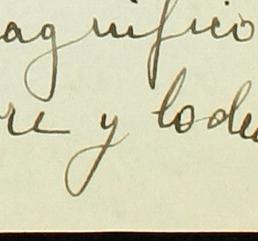 agnífico
re y lodu